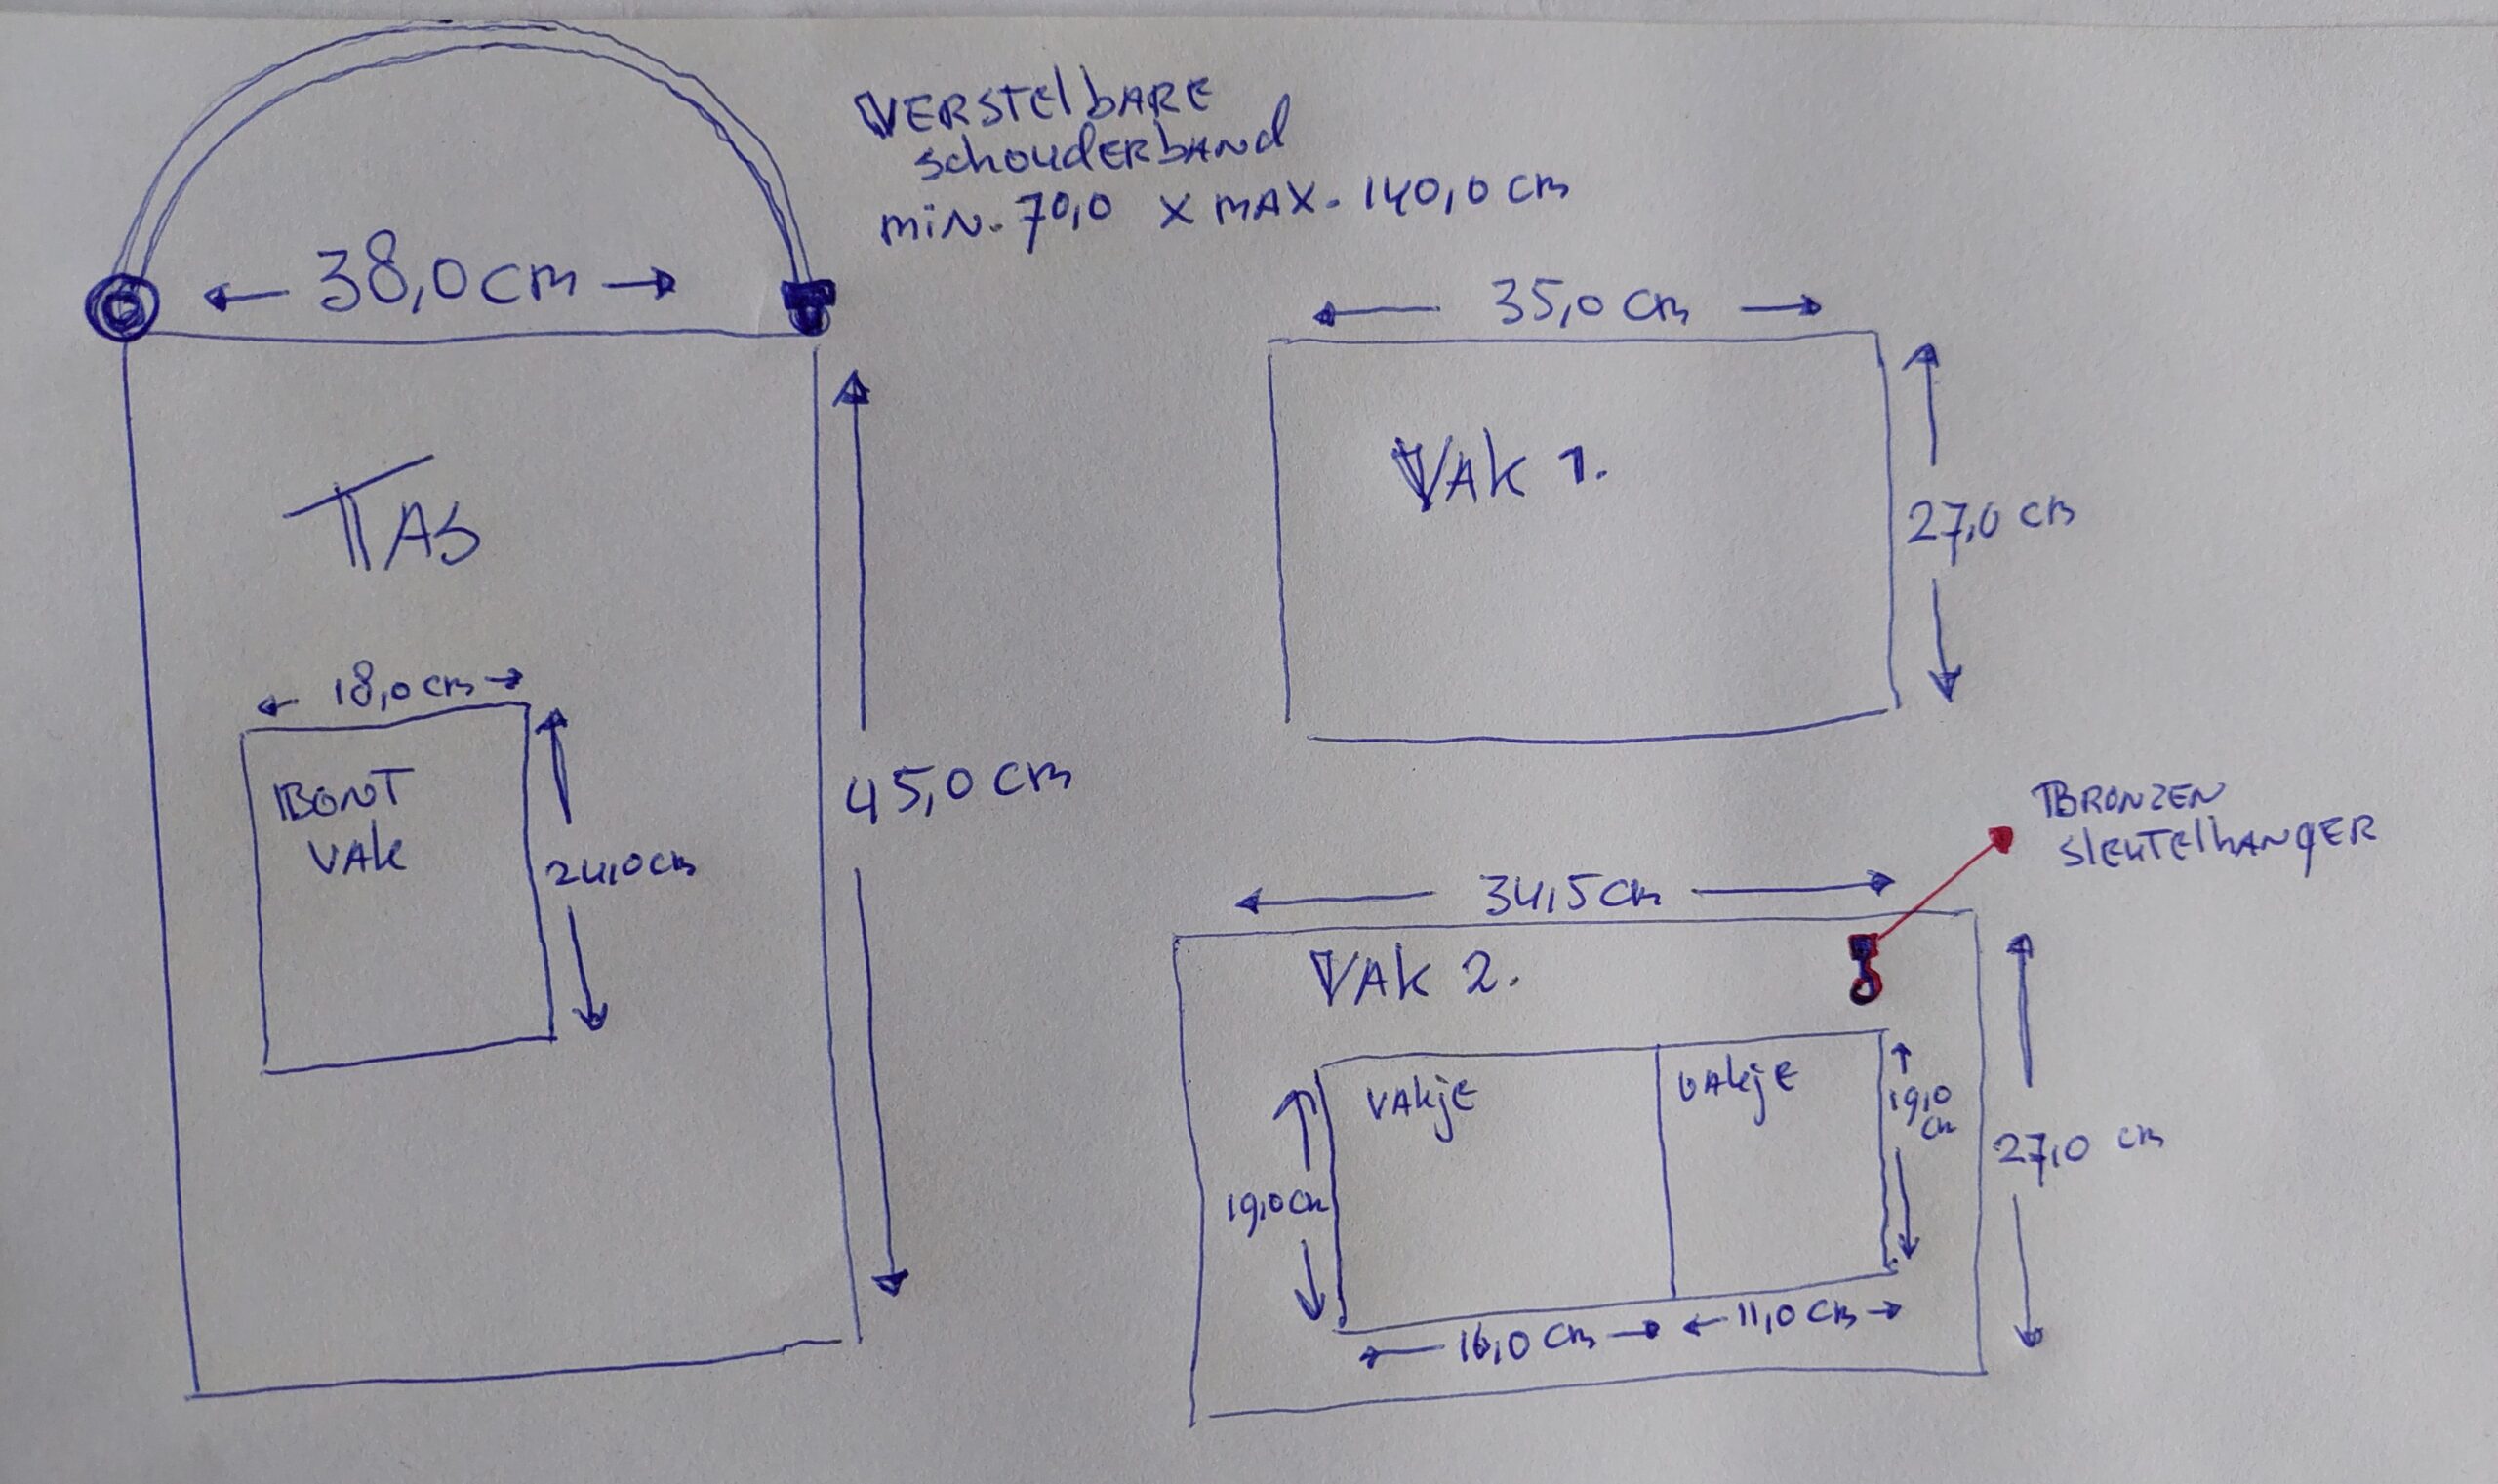 VERSTELBARE
SCHOUDERBAND
MIN. 70,0 X MAX. 140,0 CM
← 38,0 CM →
TAS
← 18,0 CM →
BONT
VAK
24,0 CM
45,0 CM
← 35,0 CM →
VAK 1.
27,0 CM
BRONZEN
SLEUTELHANGER
← 34,5 CM →
VAK 2.
VAKJE
VAKJE
19,0 CM
19,0
CM
27,0 CM
← 16,0 CM → ← 11,0 CM →